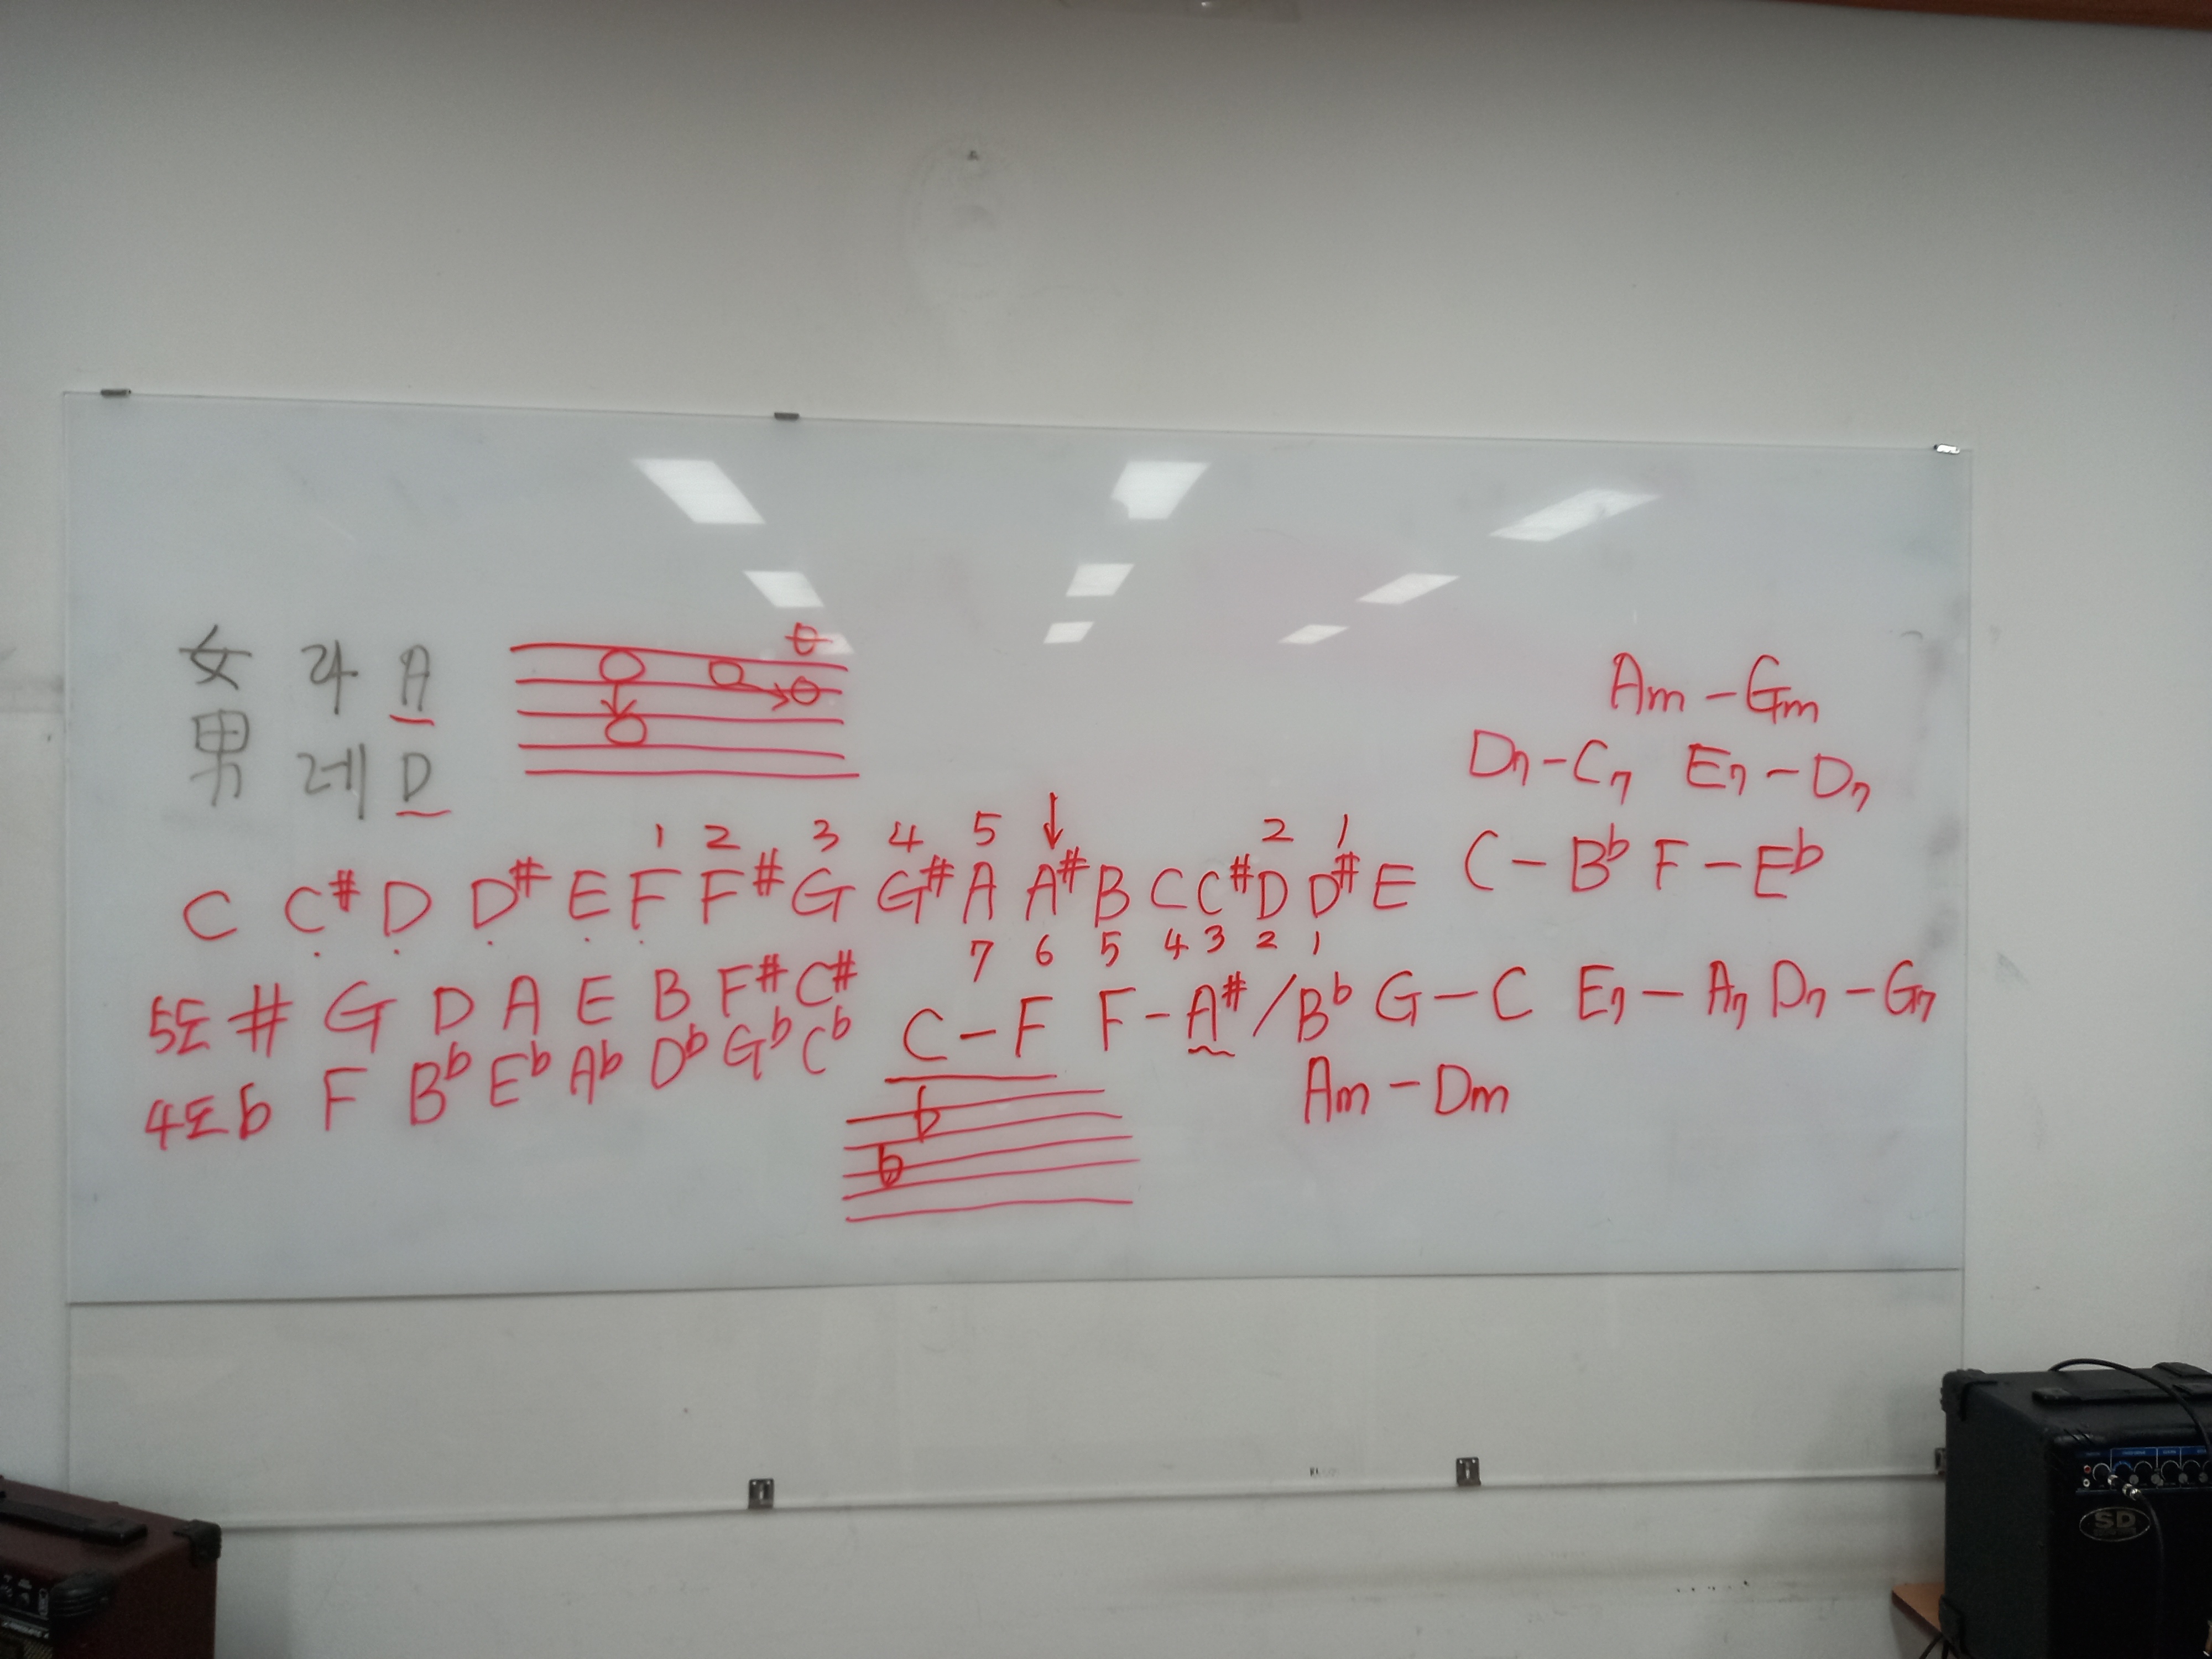 女 라 A
男 레 D
Am - Gm
D7 - C7 E7 - D7
C - Bb F - Eb
1 2 3 4 5 ↓ 2 1
C C# D D# E F F# G G# A A# B C C# D D# E
7 6 5 4 3 2 1
5도 # G D A E B F# C#
4도 b F Bb Eb Ab Db Gb Cb
C - F F - A# / Bb G - C E7 - A7 D7 - G7
Am - Dm
b
b
SD